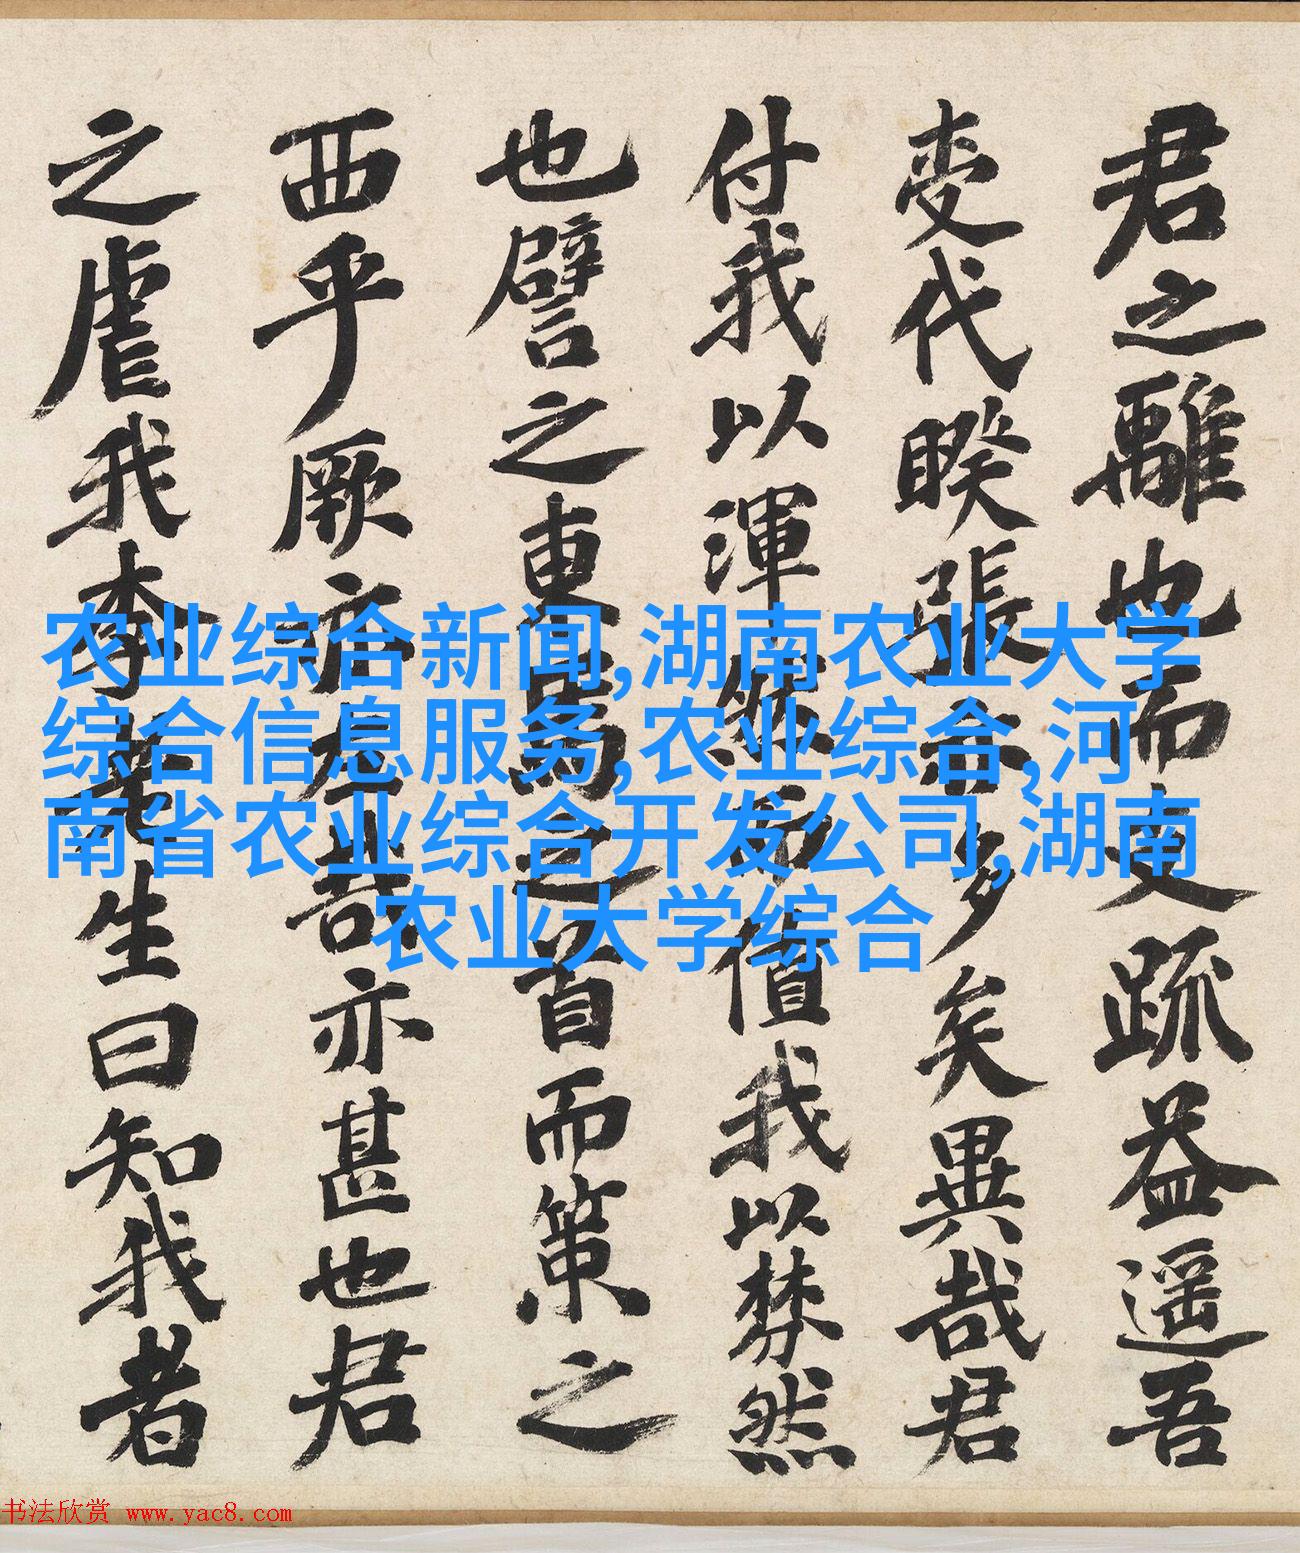 君之離也而文疏益遥吾
代睽張亦多矣異哉君
付我以渾然而值我以棼然
也譬之東馬之首而策之
西乎厥亦左哉亦甚也君
之虐我李生曰知我者
农业综合新闻,湖南农业大学
综合信息服务,农业综合,河
南省农业综合开发公司,湖南
农业大学综合
书法欣赏 www.yac8.com